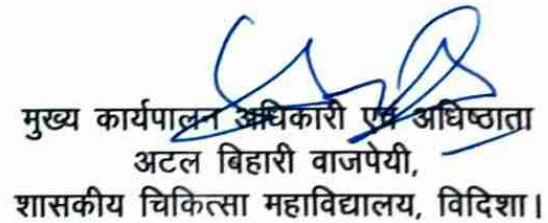 मुख्य कार्यपालन अधिकारी एवं अधिष्ठाता
अटल बिहारी वाजपेयी,
शासकीय चिकित्सा महाविद्यालय, विदिशा।